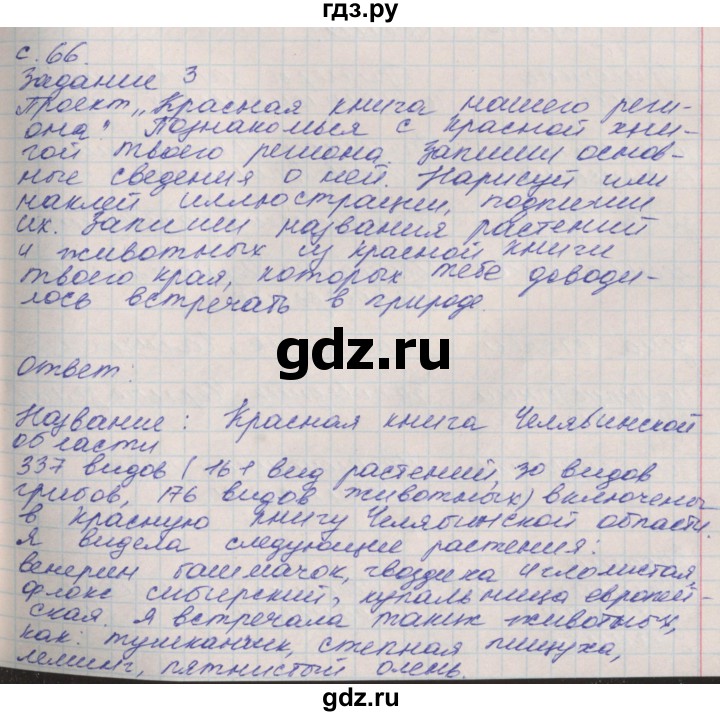 гдз.ру
с. 66.
Задание 3
Проект „Красная книга нашего реги-
она" Познакомься с Красной кни-
гой твоего региона Запиши основ-
ные сведения о ней. Нарисуй или
наклей иллюстрации, подпиши
их. Запиши названия растений
и животных из красной книги
твоего края, которых тебе доводи-
лось встречать в природе.
gdz.ru
Ответ:
Название: Красная книга Челябинской
области
337 видов (161 вид растений, 30 видов
грибов, 176 видов животных) включены
в Красную книгу Челябинской области.
Я видела следующие растения:
венерин башмачок, гвоздика иглолистая,
флокс сибирский, купальница европей-
ская. Я встречала таких животных,
как: тушканчик, степная пищуха,
леминг, пятнистый олень.
gdz.ru